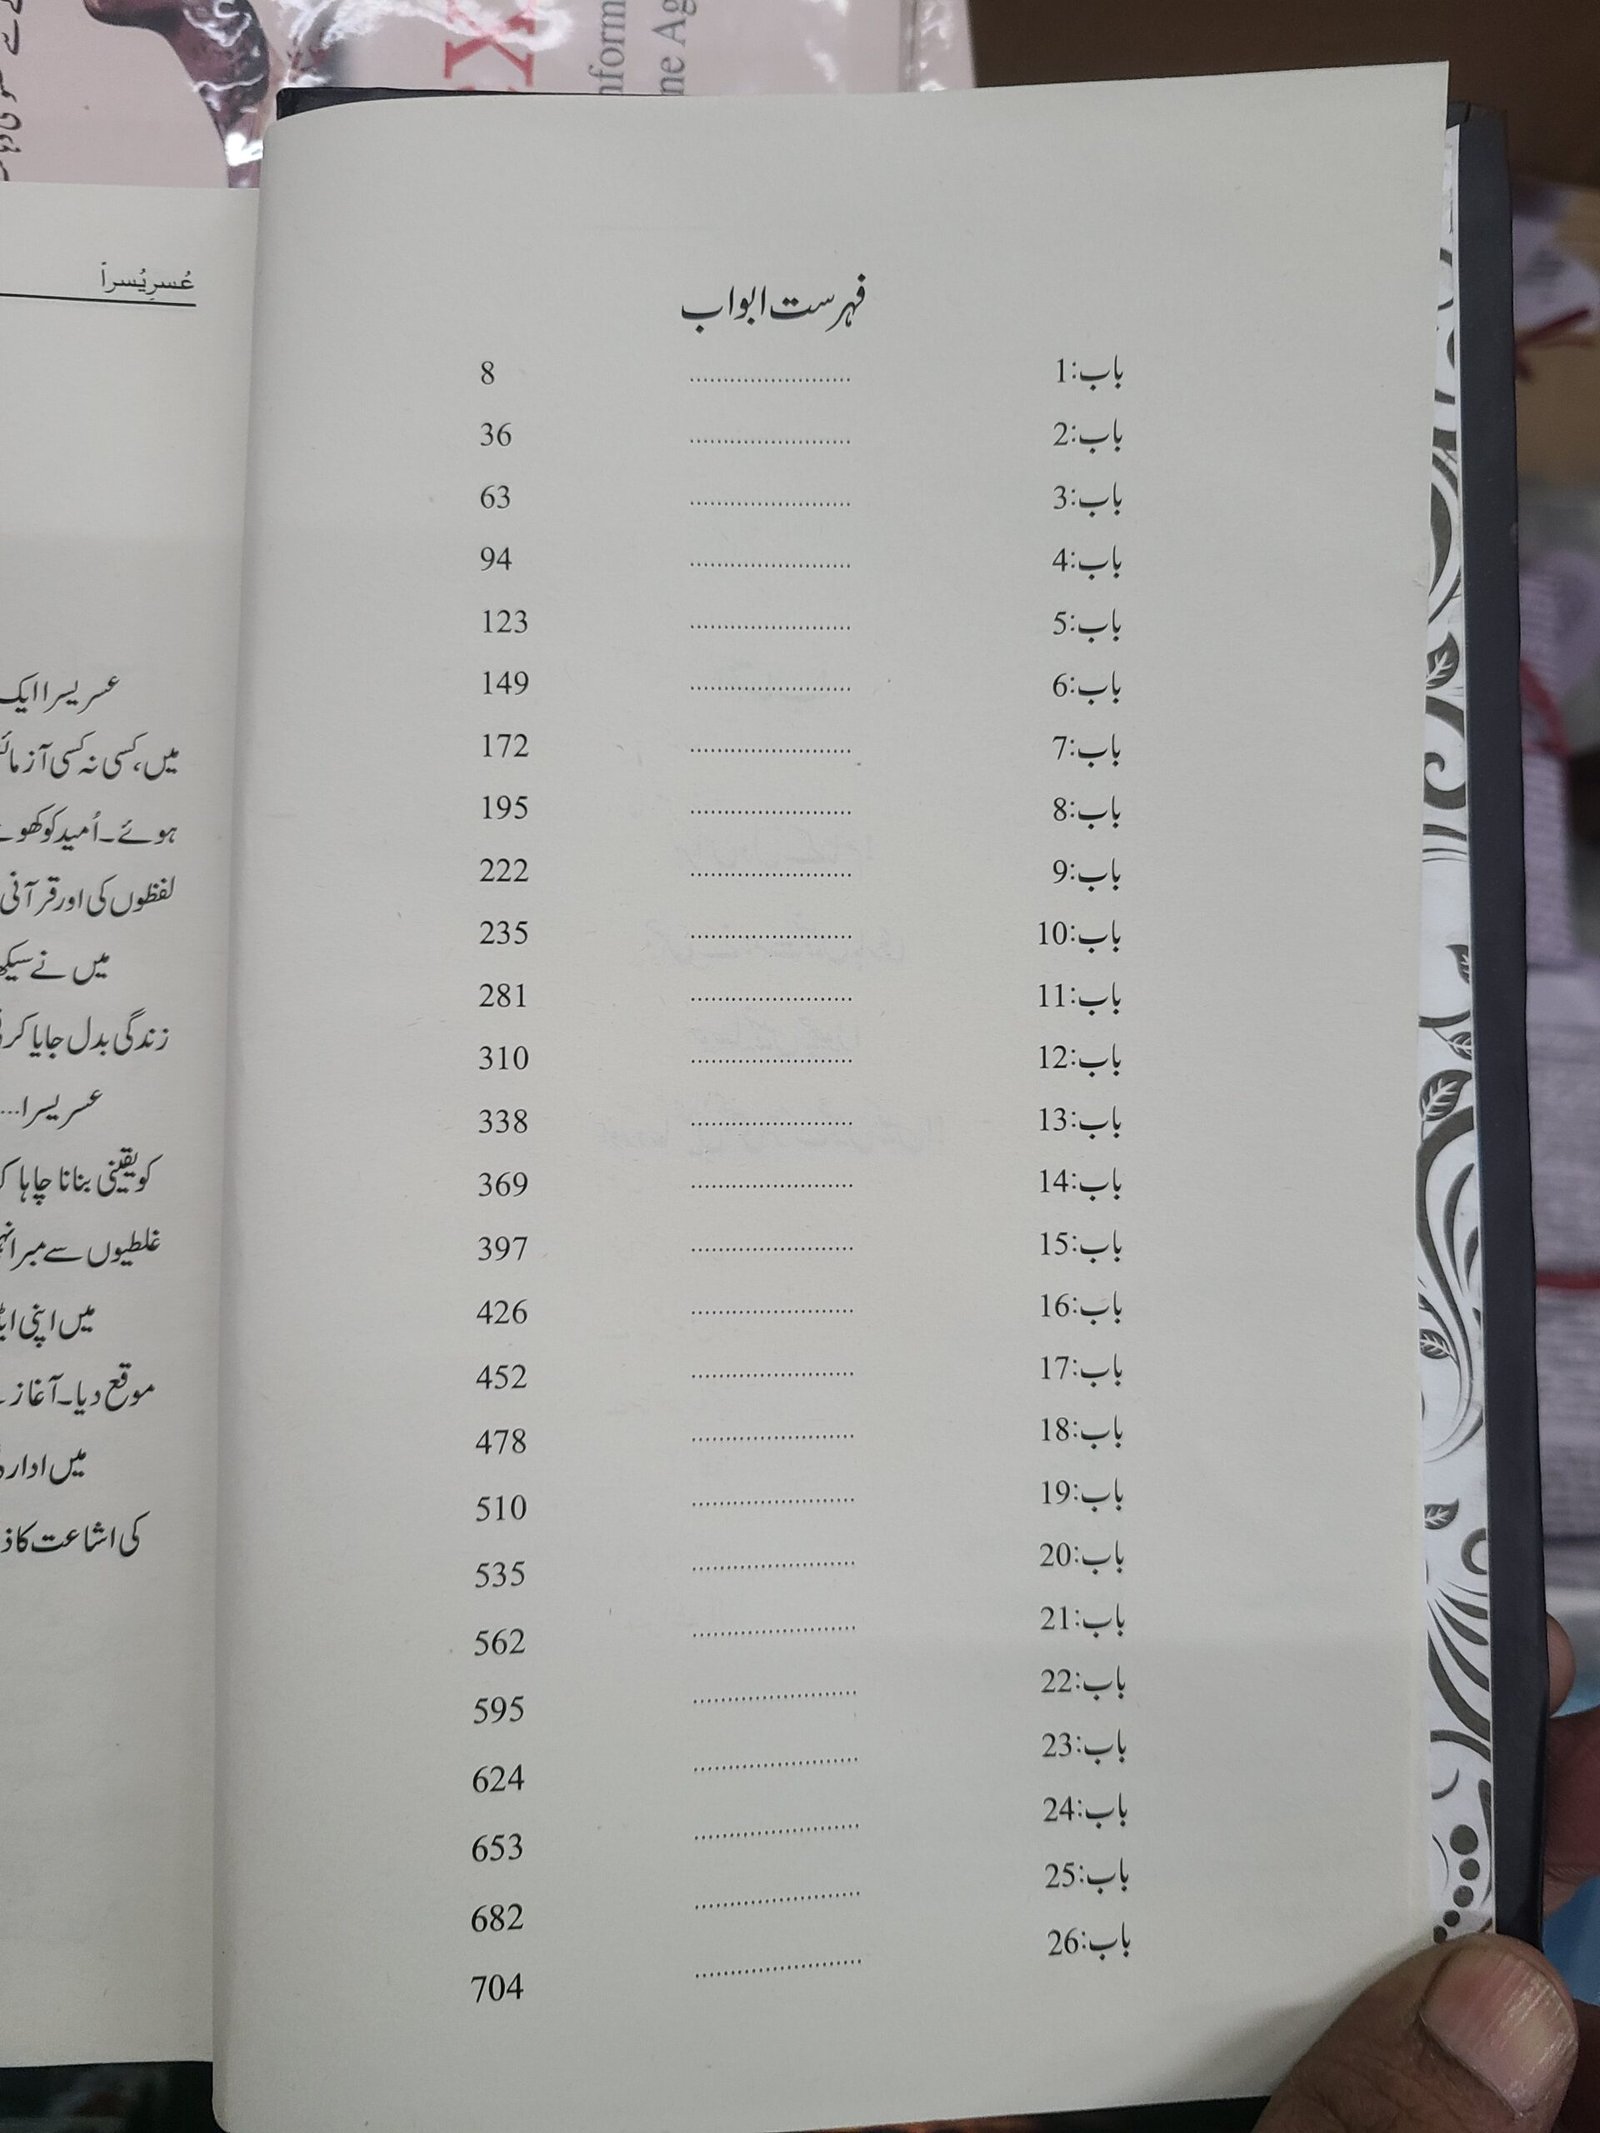 فہرست ابواب
باب:1 ........................ 8
باب:2 ........................ 36
باب:3 ........................ 63
باب:4 ........................ 94
باب:5 ........................ 123
باب:6 ........................ 149
باب:7 ........................ 172
باب:8 ........................ 195
باب:9 ........................ 222
باب:10 ........................ 235
باب:11 ........................ 281
باب:12 ........................ 310
باب:13 ........................ 338
باب:14 ........................ 369
باب:15 ........................ 397
باب:16 ........................ 426
باب:17 ........................ 452
باب:18 ........................ 478
باب:19 ........................ 510
باب:20 ........................ 535
باب:21 ........................ 562
باب:22 ........................ 595
باب:23 ........................ 624
باب:24 ........................ 653
باب:25 ........................ 682
باب:26 ........................ 704
عُسرِیُسراً
عسر یسرا ایک
میں، کسی نہ کسی
ہوئے۔ اُمید کو
لفظوں کی اور قرآنی
میں نے
زندگی بدل جایا
عسر یسرا...
کو یقینی بنانا چاہا
غلطیوں سے مبرا
میں اپنی
موقع دیا۔ آغاز
میں
کی اشاعت کا